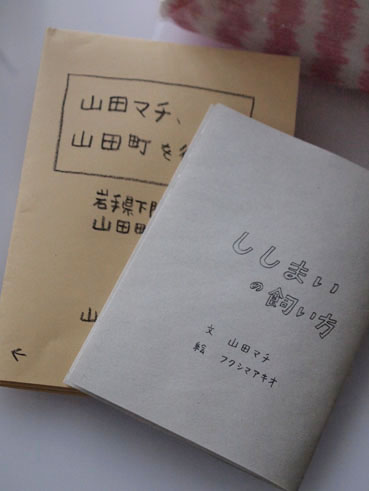 山田マチ、
山田町を
岩手県下
山田
山
←
ししまい
の飼い方
文 山田マチ
絵 フクシマアキオ